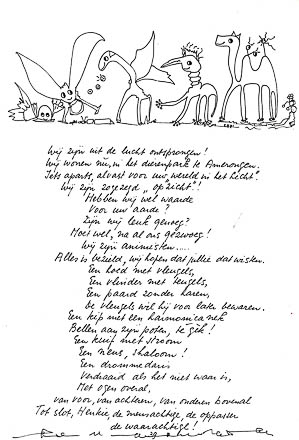 Wij zijn uit de lucht ontsprongen!
Wij wonen nu, in het dierenpark te Amerongen.
Iets aparts, alvast voor uw wereld in het hecht.
Wij zijn zogezegd "opzicht"!
Hebben wij wel waarde
Voor uw aarde?
Zijn wij leuk genoeg?
Moet wel, na al ons gezwoeg!
Wij zijn animisten.....
Alles is bezield, wij hopen dat jullie dat wisten.
Een hoed met vleugels,
Een vlinder met teugels,
Een paard zonder haren,
De vleugels wil hij voor later bewaren.
Een kip met een harmonica nek
Bellen aan zijn poten, te gek!
Een kuif met stroom
Een neus, shaloom!
Een drommedaris
Verdraaid als het niet waar is,
Met ogen overal,
van voor, van achteren, van onderen bovenal
Tot slot, Henkie, de mensachtige, de oppasser
de waarachtige!